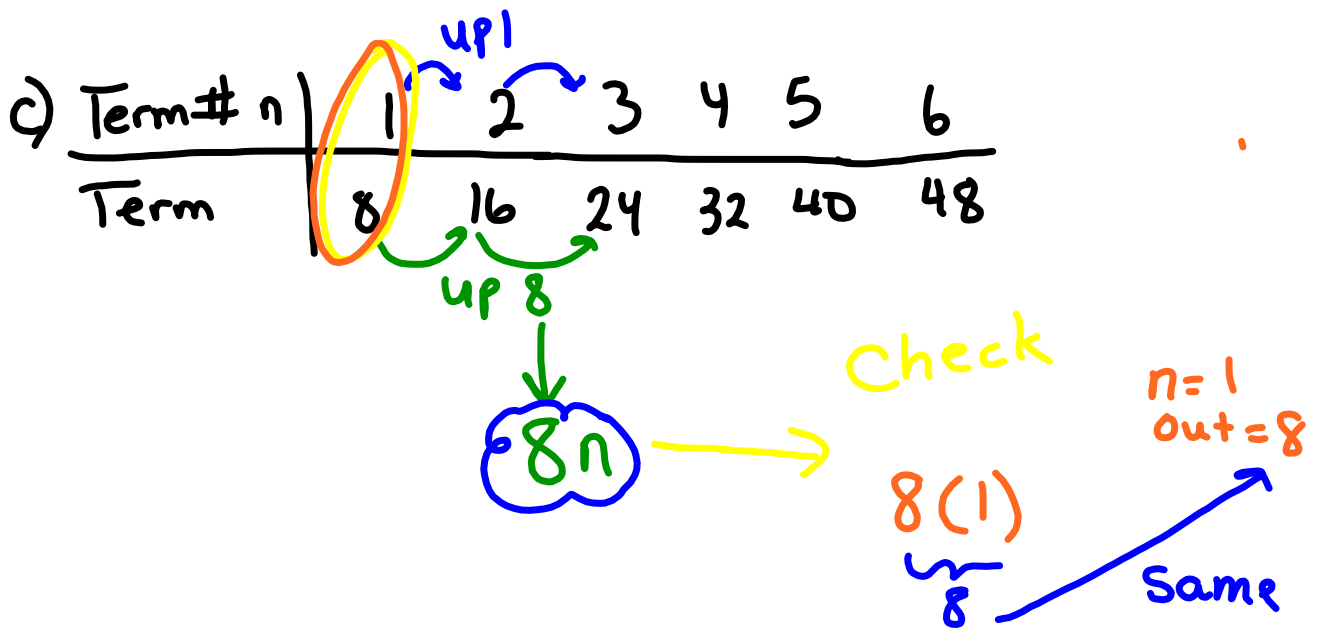 up1
c) Term# n 1 2 3 4 5 6
Term 8 16 24 32 40 48
up 8
Check
n=1
out=8
8n
8(1)
8
Same